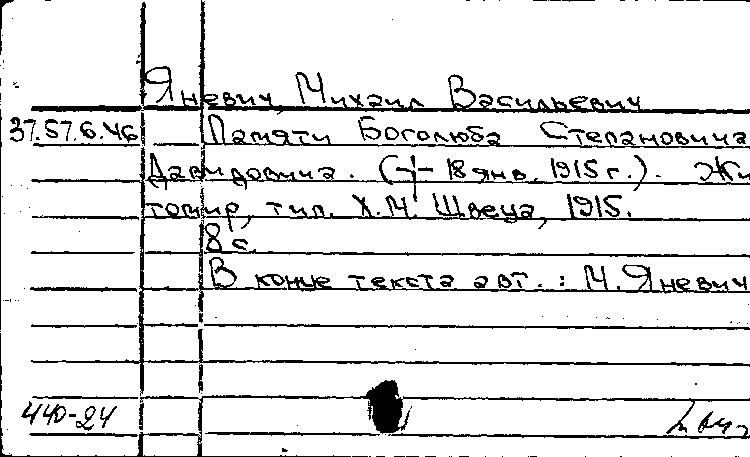 Яневич, Михаил Васильевич
37.57.6.46 Памяти Боголюба Степановича
Давидовича. (+ 18 янв. 1915 г.). Жи
томир, тип. Х.М. Швеца, 1915.
8 с.
В конце текста авт.: М. Яневич
440-24